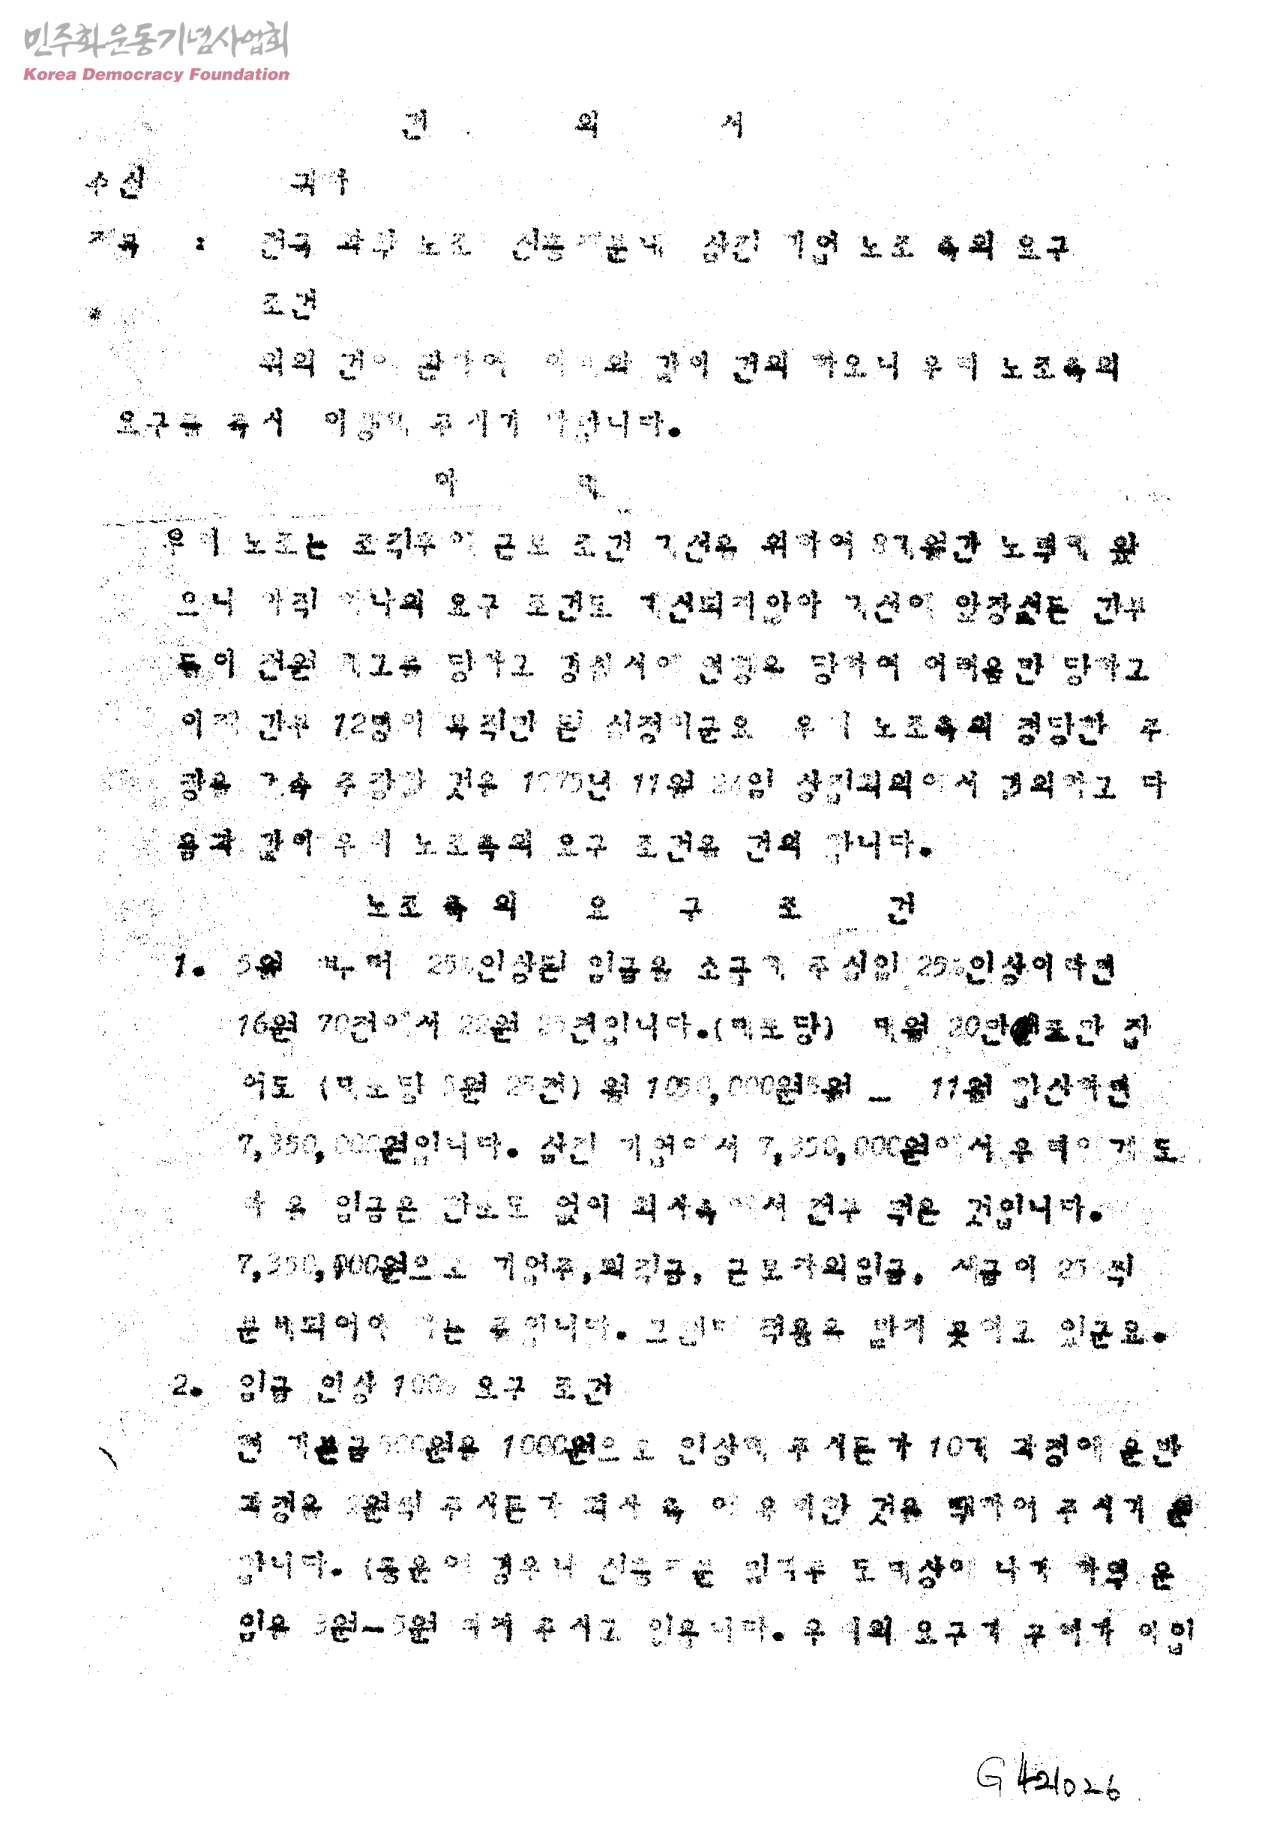 민주화운동기념사업회
Korea Democracy Foundation
건 의 서
수신 귀하
제목 : 전국 화학 노조 신흥제분내 삼진 기업 노조 측의 요구
조건
위의 건에 관하여 아래와 같이 건의 하오니 우리 노조측의
요구를 즉시 이행해 주시기 바랍니다.
아 래
우리 노조는 조직후에 근로 조건 개선을 위하여 8개월간 노력해 왔
으니 아직 하나의 요구 조건도 개선되지않아 개선에 앞장섰든 간부
들이 전원 해고를 당하고 경찰서에 연행을 당하여 어려움만 당하고
이제 간부 12명이 복직만 된 실정이군요 우리 노조측의 정당한 주
장을 계속 주장할 것을 1975년 11월 24일 상집회의에서 결의하고 다
음과 같이 우리 노조측의 요구 조건을 건의 합니다.
노조 측 의 요 구 조 건
1. 5월 부터 25%인상된 임금을 소급해 주십입 25%인상이라면
16원 70전에서 22원 25전입니다.(매포당) 매월 20만 포만 잡
어도 (매포당 5원 25전) 월 1050,000원5월 - 11월 합산하면
7,350,000원입니다. 삼진 기업에서 7,350,000원에서 우리에게 도
라 올 임금은 한푼도 없이 회사측에서 전부 먹은 것입니다.
7,350,000원으로 기업주,퇴직금, 근로자의임금, 세금이 25%씩
분배되어야 하는 줄입니다. 그런데 적용을 받지 못하고 있군요.
2. 임금 인상 100% 요구 조건
현 기본급500원을 1000원으로 인상해 주시든가 10개 과정에 운반
과정을 2원씩 주시든가 회사 측 에 유리한 것을 택하여 주시기 원
합니다. (동운에 경우나 신흥제분 입대부 도매상에 나가 하역 운
임을 3원-5원 까지 주시고 있읍니다. 우리의 요구가 구태가 아입
G421026